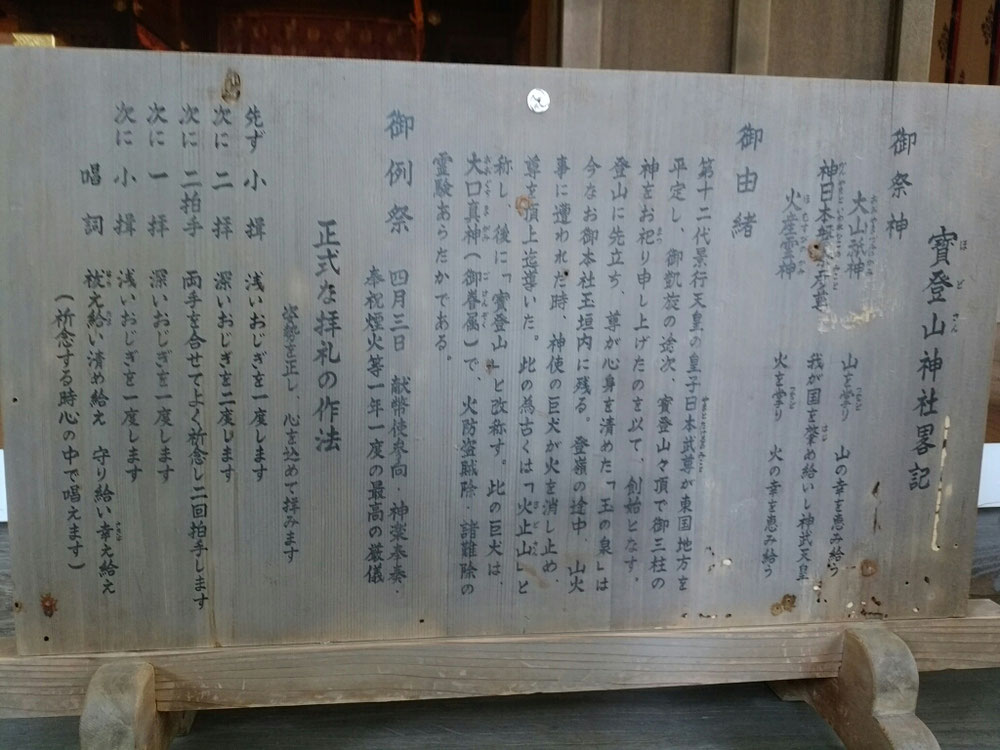 寳登山神社畧記
御祭神
大山祇神 山を掌り 山の幸を恵み給う
神日本磐余彦尊 我が国を肇め給いし神武天皇
火産霊神 火を掌り 火の幸を恵み給う
御由緒
第十二代景行天皇の皇子日本武尊が東国地方を
平定し、御凱旋の途次、寳登山々頂で御三柱の
神をお祀り申し上げたのを以て、創始となす。
登山に先立ち、尊が心身を清めた「玉の泉」は
今なお御本社玉垣内に残る。登嶺の途中 山火
事に遭われた時、神使の巨犬が火を消し止め、
尊を頂上迄導いた。此の為古くは「火止山」と
称し、後に「寳登山」と改称す。此の巨犬は、
大口真神(御眷属)で、火防盗賊除・諸難除の
霊験あらたかである。
御例祭 四月三日 献幣使参向・神楽奉奏・
奉祝煙火等一年一度の最高の厳儀
正式な拝礼の作法
姿勢を正し、心を込めて拝みます
先ず 小揖 浅いおじぎを一度します
次に 二拝 深いおじぎを二度します
次に 二拍手 両手を合せてよく祈念し二回拍手します
次に 一拝 深いおじぎを一度します
次に 小揖 浅いおじぎを一度します
唱詞 祓え給い清め給え 守り給い幸え給え
(祈念する時心の中で唱えます)